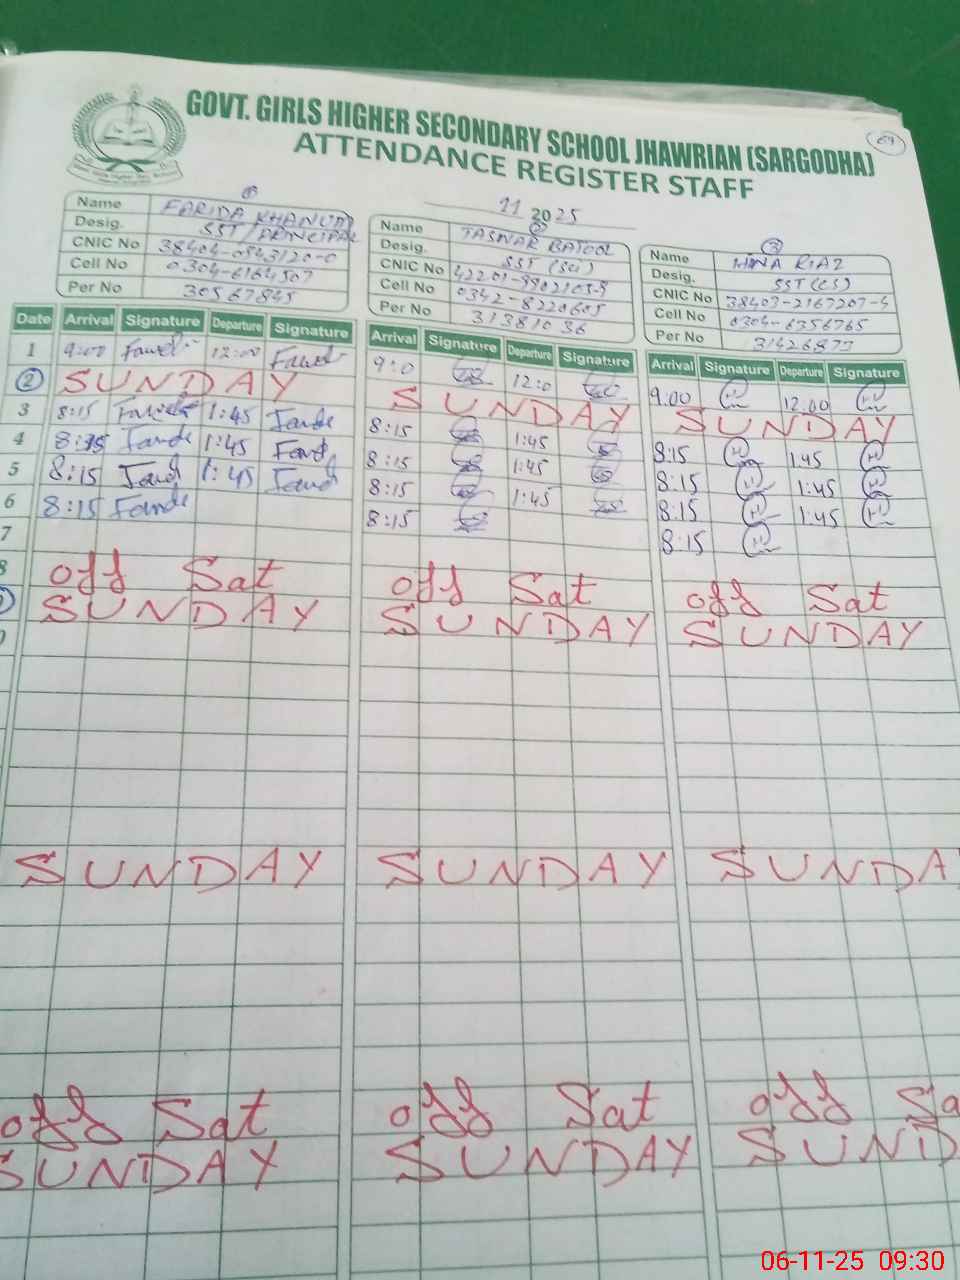 GOVT. GIRLS HIGHER SECONDARY SCHOOL JHAWRIAN (SARGODHA)
69
ATTENDANCE REGISTER STAFF
11 2025
1
Name FARIDA KHANUM
Desig. SST / PRINCIPAL
CNIC No 38404-0543120-0
Cell No 0304-6164507
Per No 30567845
2
Name TASWAR BATOOL
Desig. SST (Sci)
CNIC No 42201-9902105-8
Cell No 0342-8220605
Per No 31381036
3
Name HINA RIAZ
Desig. SST (CS)
CNIC No 38403-2167207-4
Cell No 0304-6356765
Per No 31426873
Date Arrival Signature Departure Signature Arrival Signature Departure Signature Arrival Signature Departure Signature
1 9:00 12:00 9:0 12:0 9:00 12:00
2 SUNDAY SUNDAY SUNDAY
3 8:15 1:45 8:15 1:45 8:15 1:45
4 8:15 1:45 8:15 1:45 8:15 1:45
5 8:15 1:45 8:15 1:45 8:15 1:45
6 8:15 8:15 8:15
7
8 off Sat off Sat off Sat
SUNDAY SUNDAY SUNDAY
SUNDAY SUNDAY SUNDA
off Sat off Sat off Sa
SUNDAY SUNDAY SUND
06-11-25 09:30